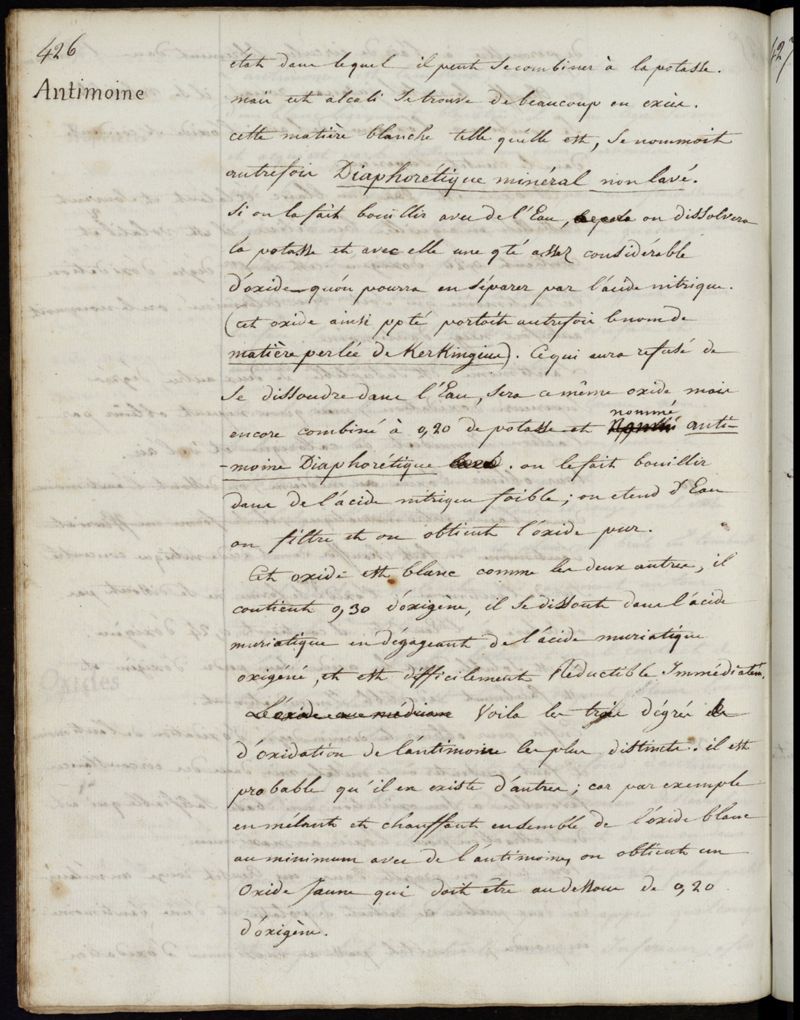 426
Antimoine
état dans lequel il peut se combiner à la potasse.
mais cet alcali se trouve de beaucoup en excès.
cette matière blanche telle qu'elle est, se nommoit
autrefois Diaphorétique minéral non lavé.
Si on la fait bouillir avec de l'Eau, on dissolvera
la potasse et avec elle une qté assez considérable
d'oxide qu'on pourra en séparer par l'acide nitrique.
(cet oxide ainsi ppté portoit autrefois le nom de
matière perlée de Kerkingius). Ce qui aura refusé de
se dissoudre dans l'Eau, sera ce même oxide mais
encore combiné à 0,20 de potasse et nommé anti-
-moine Diaphorétique lavé. on le fait bouillir
dans de l'acide nitrique foible; on etend d'Eau
on filtre et on obtient l'oxide pur.
Cet oxide est blanc comme les deux autres, il
contient 0,30 d'oxigène, il se dissout dans l'acide
muriatique en dégageant de l'acide muriatique
oxigéné, et est difficilement Réductible Immédiatemt.
Voila les trois dégrés
d'oxidation de l'antimoine les plus distincts. il est
probable qu'il en existe d'autres; car par exemple
en mêlant et chauffant ensemble de l'oxide blanc
au minimum avec de l'antimoine, on obtient un
Oxide Jaune qui doit être au dessous de 0,20
d'oxigène.
427